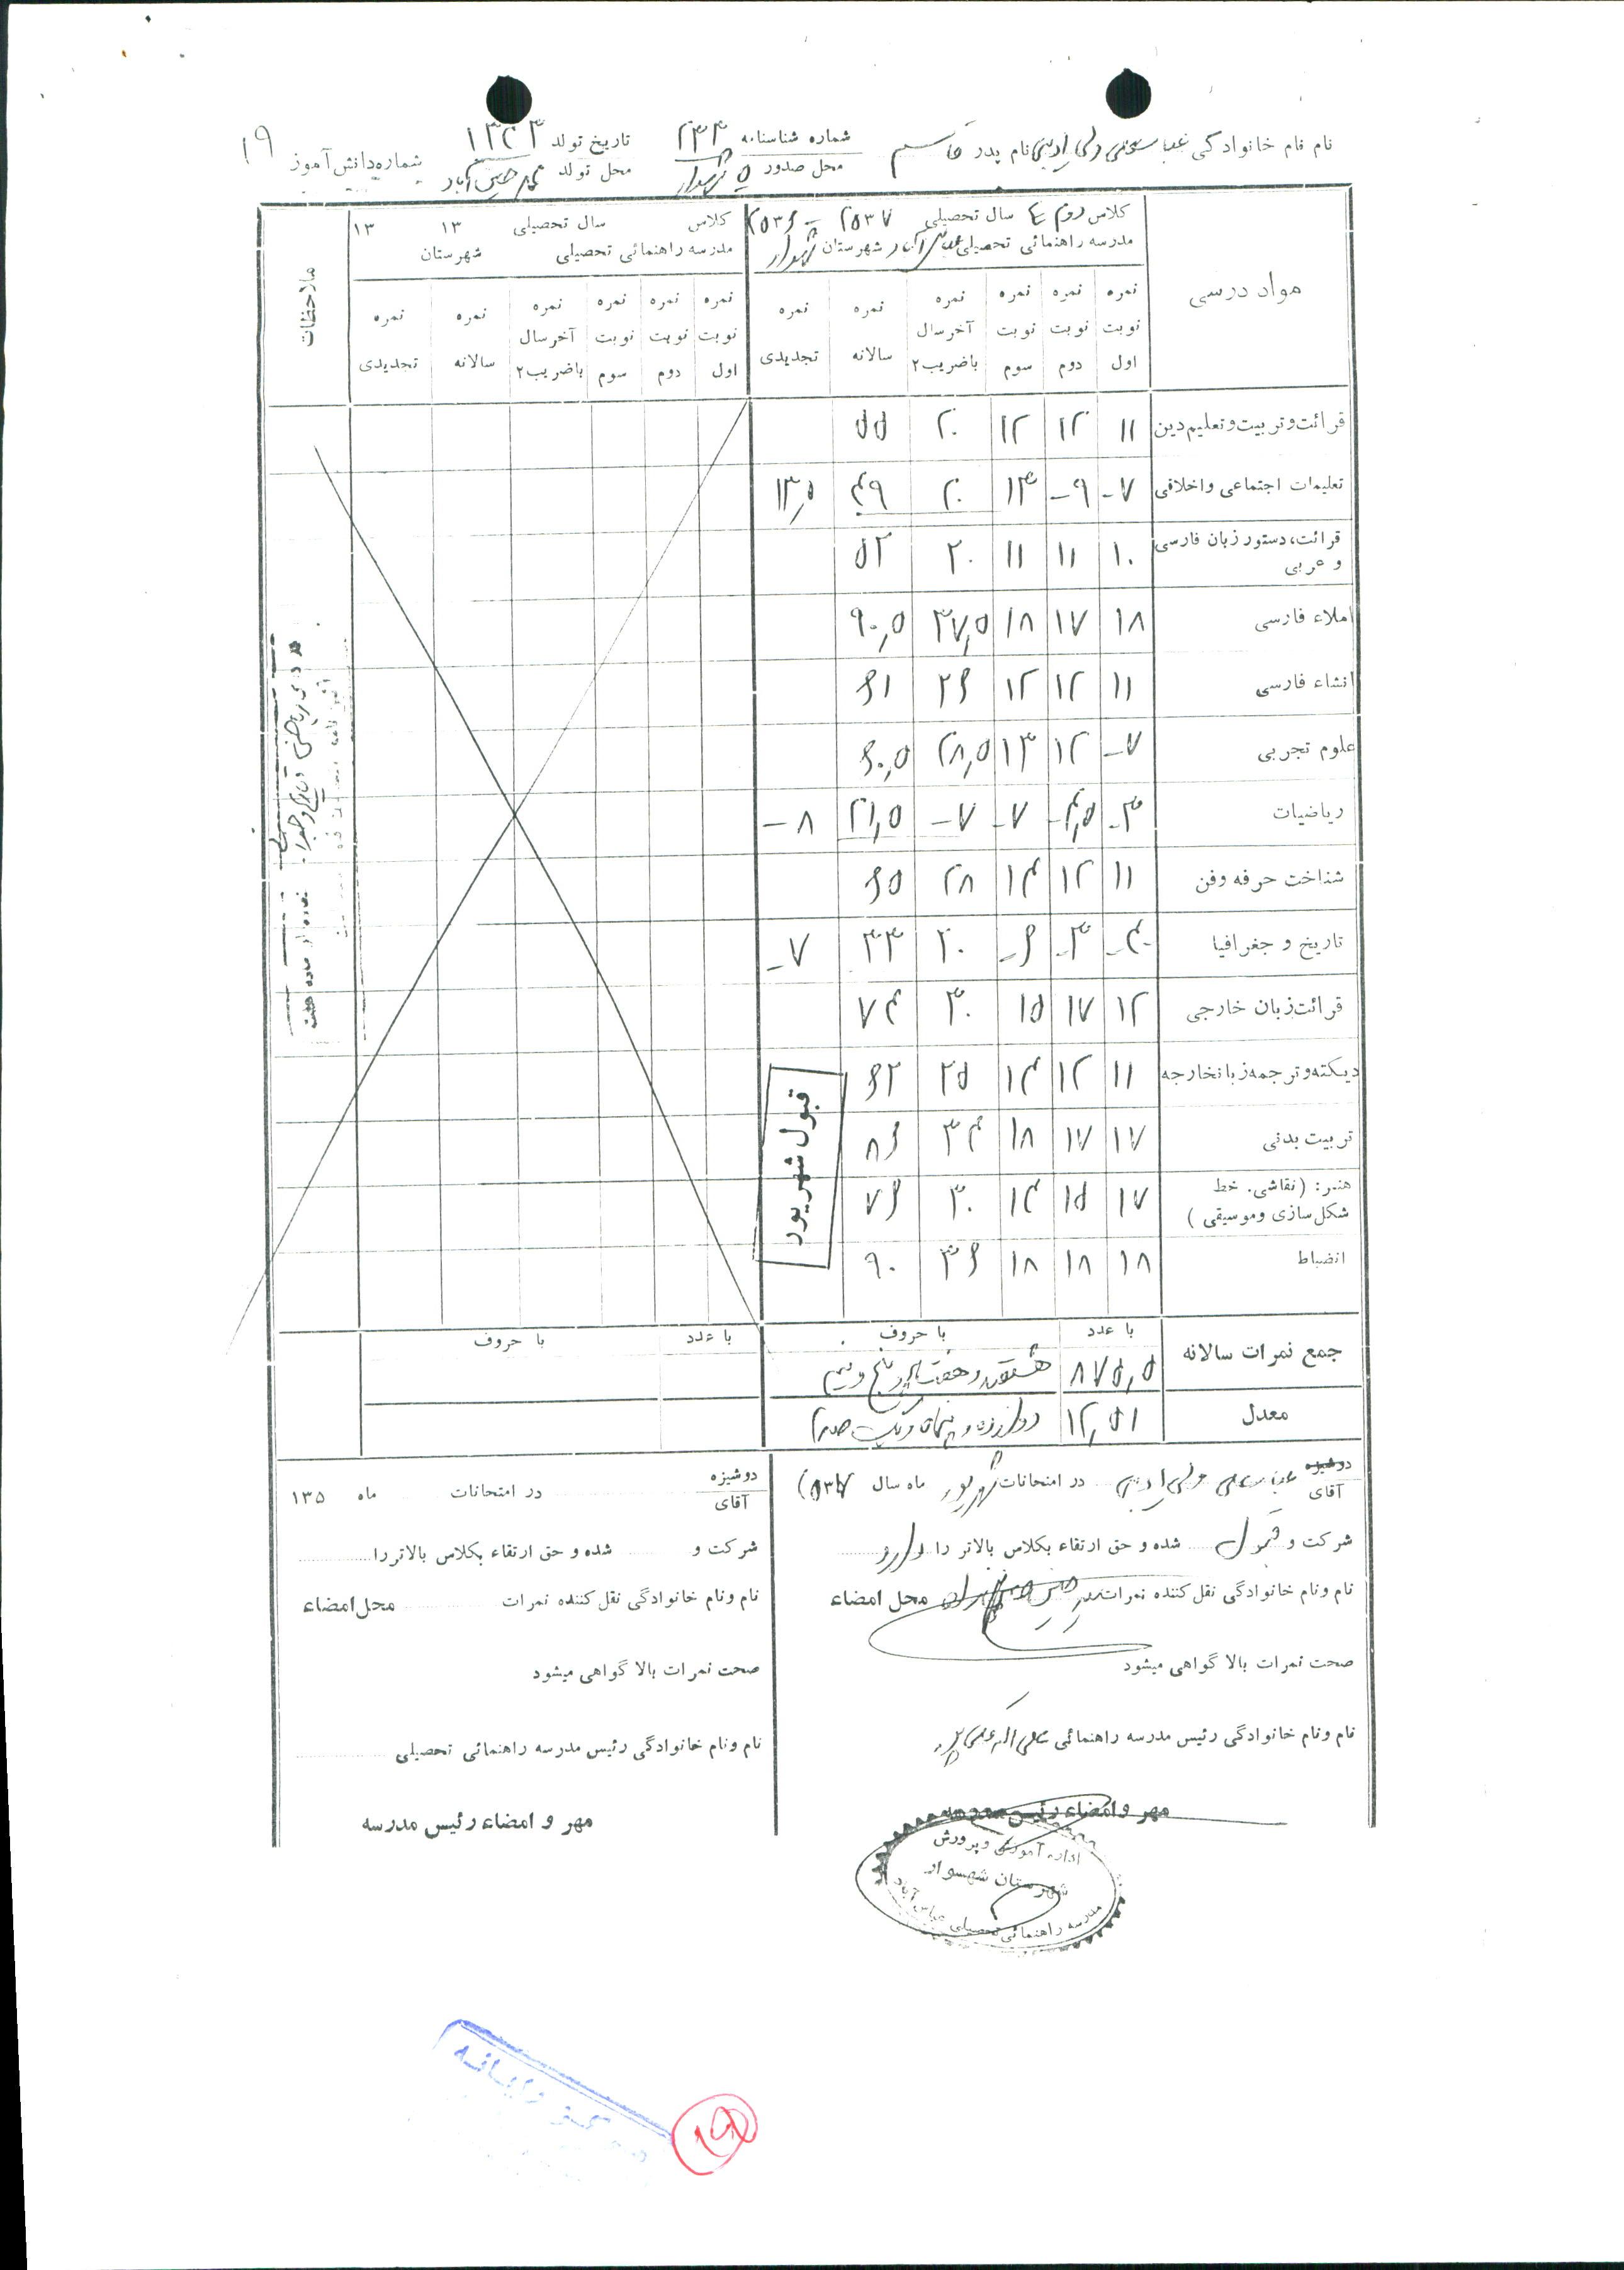 نام نام خانوادگی عباسعلی ولی ادیبی نام پدر قاسم شماره شناسنامه ۲۳۳ تاریخ تولد ۱۳۴۳ شماره دانش آموز ۱۹
محل صدور شهسوار محل تولد
مواد درسی
کلاس دوم سال تحصیلی ۲۵۳۷ - ۲۵۳۶
مدرسه راهنمائی تحصیلی عباس آباد شهرستان شهسوار
کلاس سال تحصیلی ۱۳ ۱۳
مدرسه راهنمائی تحصیلی شهرستان
ملاحظات
نمره نوبت اول نمره نوبت دوم نمره نوبت سوم نمره آخر سال باضریب۲ نمره سالانه نمره تجدیدی
نمره نوبت اول نمره نوبت دوم نمره نوبت سوم نمره آخر سال باضریب۲ نمره سالانه نمره تجدیدی
قرائت و تربیت و تعلیم دین ۱۱ ۱۲ ۱۲ ۲۰ ۵۵
تعلیمات اجتماعی و اخلاقی ۷- ۹- ۱۳ ۲۰ ۴۹ ۱۳٫۵
قرائت، دستور زبان فارسی و عربی ۱۰ ۱۱ ۱۱ ۲۰ ۵۲
املاء فارسی ۱۸ ۱۷ ۱۸ ۳۷٫۵ ۹۰٫۵
انشاء فارسی ۱۱ ۱۲ ۱۲ ۲۶ ۶۱
علوم تجربی ۷- ۱۲ ۱۳ ۲۸٫۵ ۶۰٫۵
ریاضیات ۳- ۴٫۵- ۷- ۷- ۲۱٫۵ ۸-
شناخت حرفه وفن ۱۱ ۱۲ ۱۴ ۲۸ ۶۵
تاریخ و جغرافیا ۴- ۳- ۶- ۲۰ ۳۳ ۷-
قرائت زبان خارجی ۱۲ ۱۷ ۱۵ ۳۰ ۷۴
دیکته و ترجمه زبانخارجه ۱۱ ۱۲ ۱۴ ۲۵ ۶۲
تربیت بدنی ۱۷ ۱۷ ۱۸ ۳۴ ۸۶
هنر: (نقاشی. خط
شکل سازی وموسیقی) ۱۷ ۱۵ ۱۴ ۳۰ ۷۶
انضباط ۱۸ ۱۸ ۱۸ ۳۶ ۹۰
قبول شهریور
با عدد با حروف با عدد با حروف
جمع نمرات سالانه ۸۷۵٫۵ هشتصد و هفتاد و پنج و نیم
معدل ۱۲٫۵۱ دوازده و پنجاه و یک صدم
دوشیزه
آقای عباسعلی ولی ادیبی در امتحانات شهریور ماه سال ۲۵۳۷
شرکت و قبول شده و حق ارتقاء بکلاس بالاتر را دارد
نام ونام خانوادگی نقل کننده نمرات محل امضاء
صحت نمرات بالا گواهی میشود
نام ونام خانوادگی رئیس مدرسه راهنمائی
مهر و امضاء رئیس مدرسه
اداره آموزش و پرورش
شهرستان شهسوار
مدرسه راهنمائی تحصیلی عباس آباد
دوشیزه
آقای در امتحانات ماه ۱۳۵
شرکت و شده و حق ارتقاء بکلاس بالاتر را
نام ونام خانوادگی نقل کننده نمرات محل امضاء
صحت نمرات بالا گواهی میشود
نام ونام خانوادگی رئیس مدرسه راهنمائی تحصیلی
مهر و امضاء رئیس مدرسه
رایانه